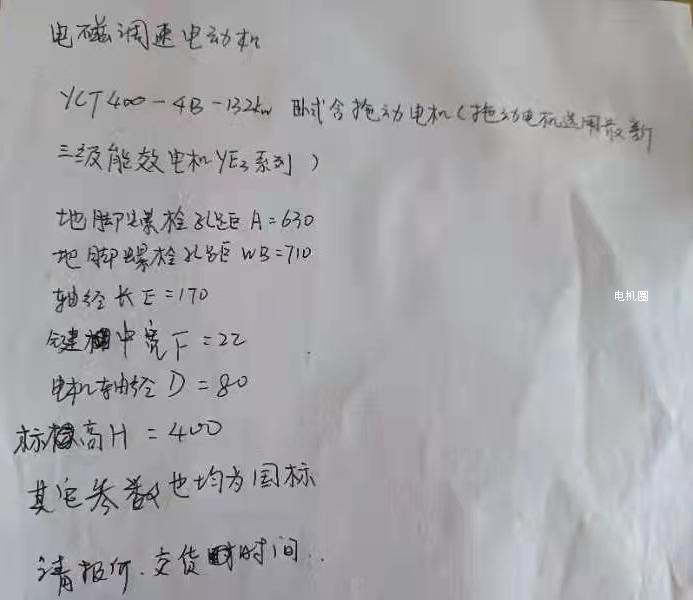 电磁调速电动机
YCT400-4B-132kw 卧式含拖动电机(拖动电机选用最新
三级能效电机YE3系列)
地脚螺栓孔距 A=630
地脚螺栓孔距 WB=710
电机圈
轴径长E=170
键槽中宽F=22
电机轴径D=80
标高H=400
其它参数也均为国标
请报价.交货时间..